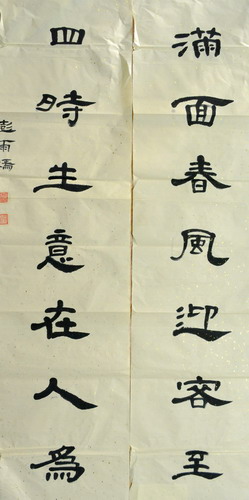 滿面春風迎容至
四時生意在人為
彭雨